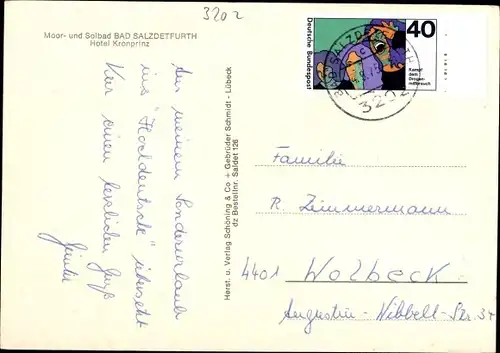 3202
Moor- und Solbad BAD SALZDETFURTH
Hotel Kronprinz
Aus meinem Sonderurlaub
ins "Hochdeutsche" übersetzt
hier einen herzlichen Gruß
Günter
Herst. u. Verlag Schöning & Co + Gebrüder Schmidt - Lübeck
dz Bestellnr. Saldet 126
Deutsche Bundespost
40
Kampf
dem
Drogen-
missbrauch
BAD SALZDETFURTH
3202
Familie
R. Zimmermann
4401 Wolbeck
Augustin-Wibbelt-Str. 34